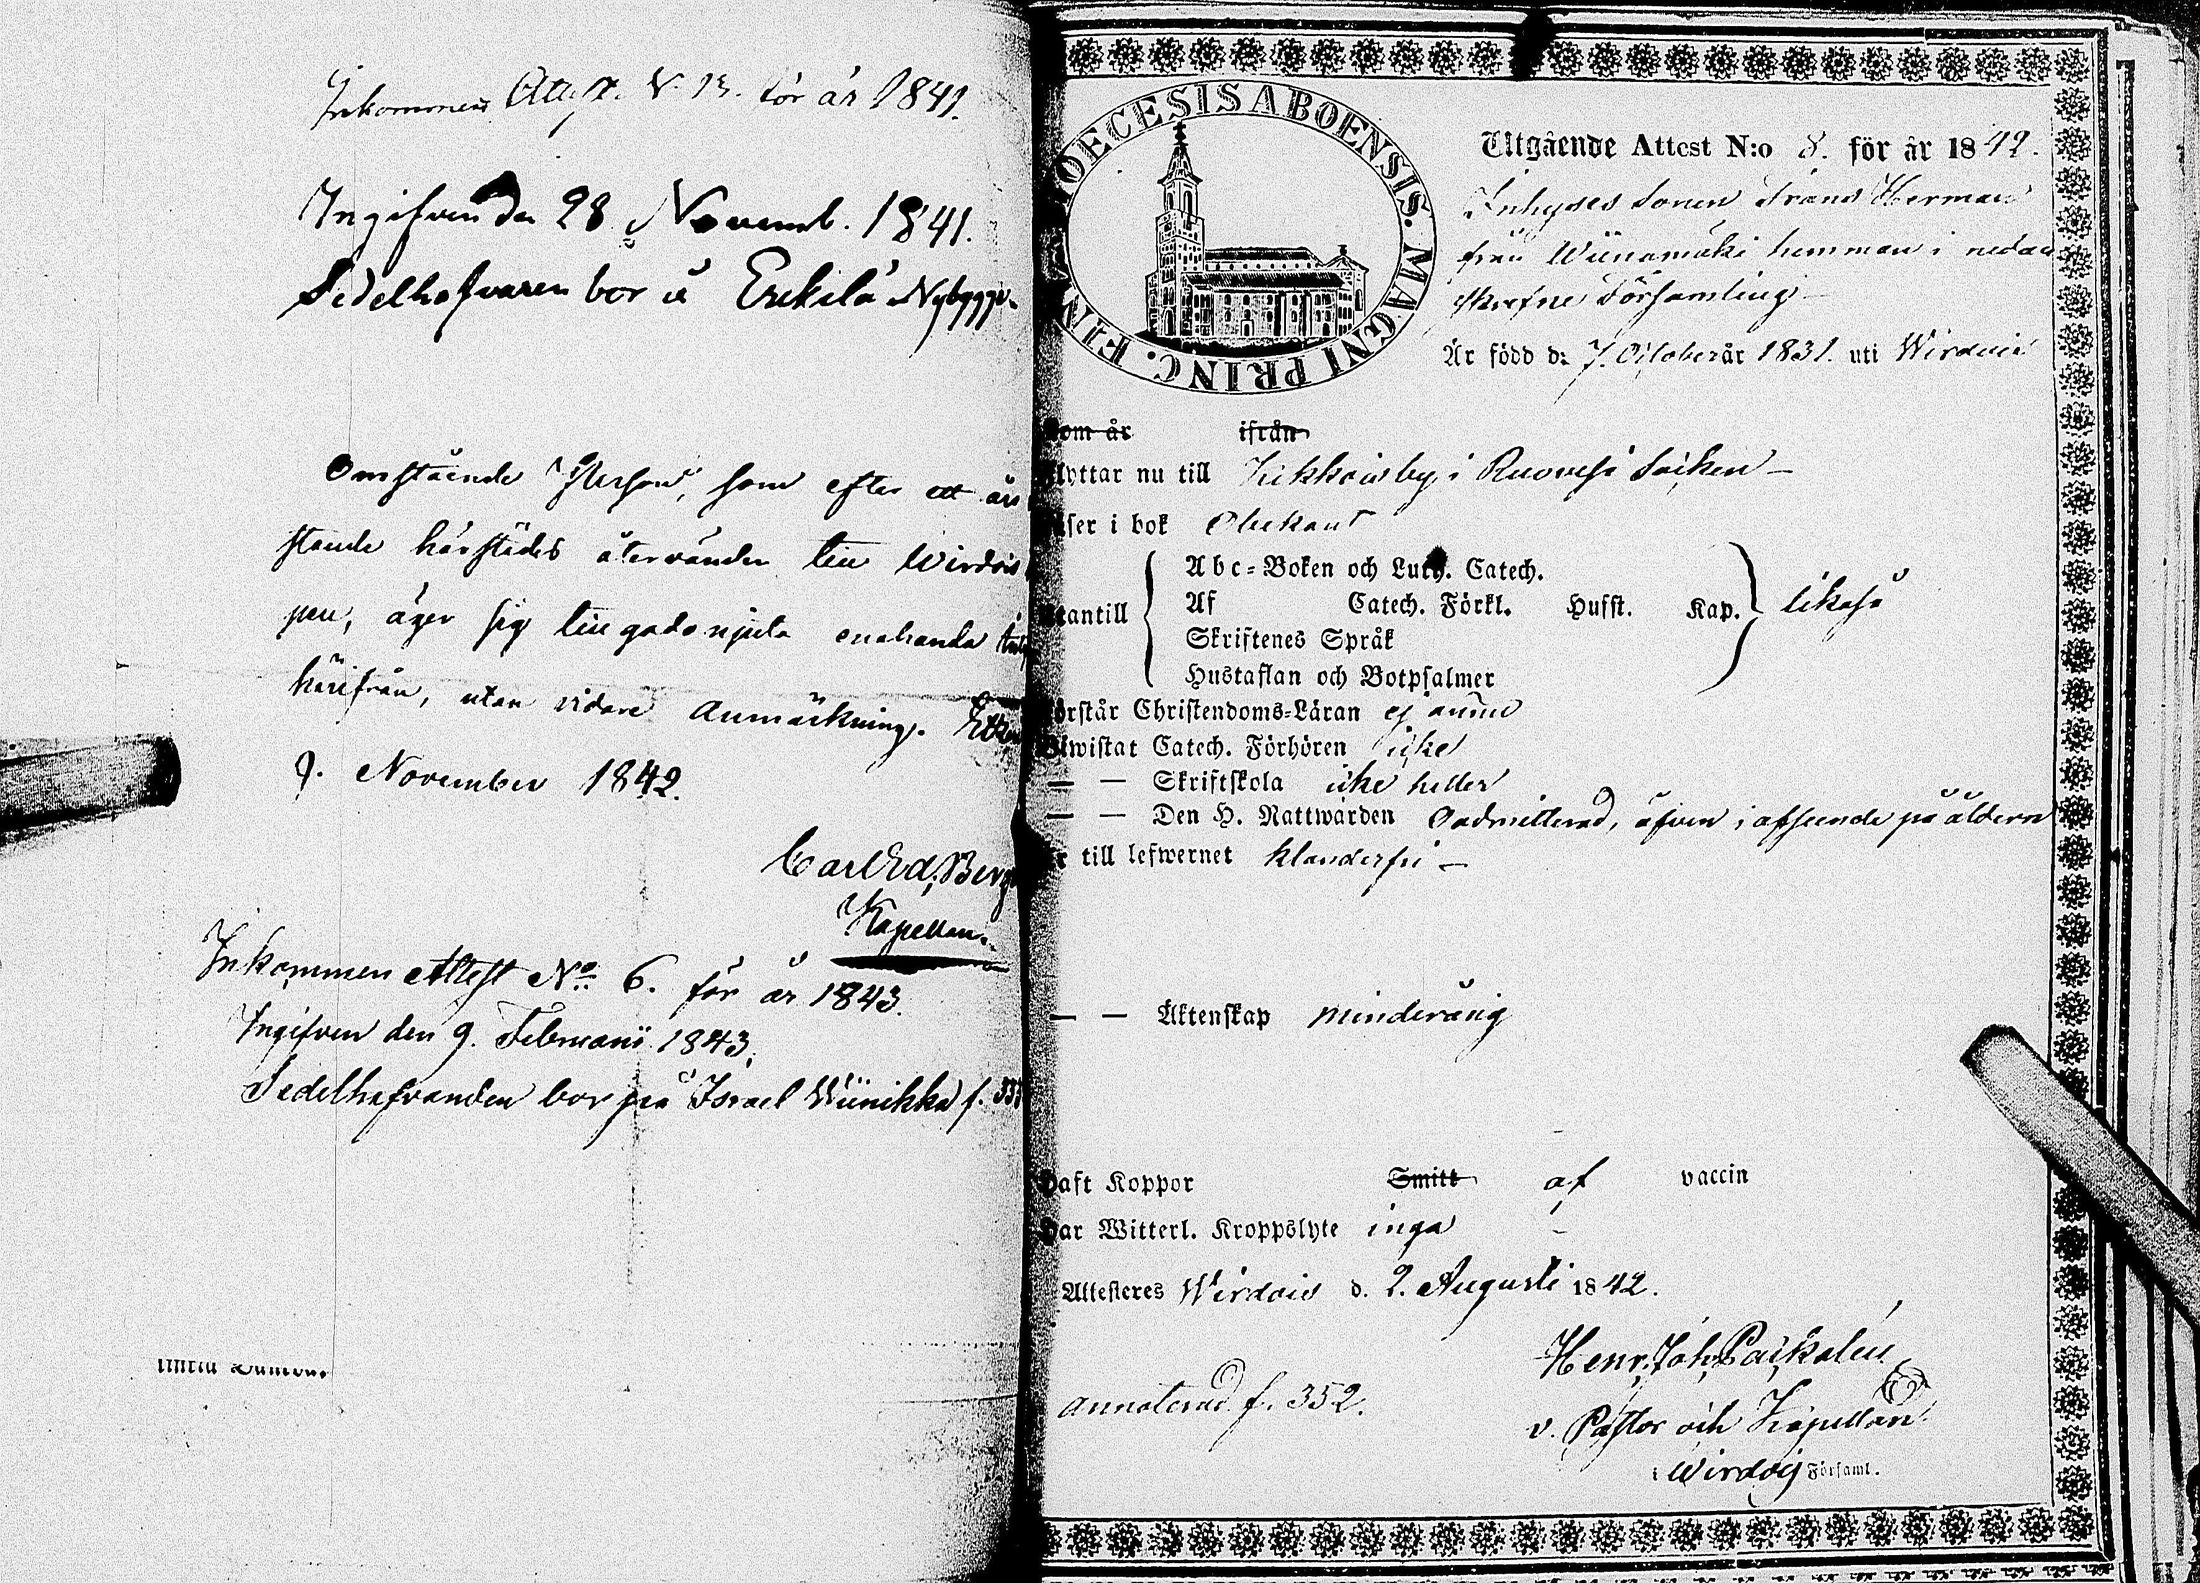 Inkommen Attest N. 13. för år 1841.
Ingifven den 28 Novemb. 1841.
Sedelhafvaren bor å Erkilä Nybygge.
Omstående Person, som efter ett års
stande härstädes återvänder till Wirdois
pen, äger sig till godo njuta enahanda
härifrån, utan vidare anmärkning.
November 1842.
Carl Ed. Berg
Kapellan.
Inkommen Attest No. 6. för år 1843.
Ingifven den 9. Februarii 1843.
Sedelhafvanden bor på Israel Wiinikka f. 33
DIOECESIS ABOENSIS. MAGNI PRINC. FIN
Utgående Attest N:o 8. för år 1842.
Inhyses Sonen Frans Herman
från Wiinamäki hemman i nedan
skrefne Församling
Är född d: 7. October år 1831. uti Wirdois
som år ifrån
flyttar nu till by i Ruovesi Socken
läser i bok Obekant
Utantill
Abc-Boken och Luth. Catech.
Af Catech. Förkl. Husst. Kap. likaså
Skriftenes Språk
Hustaflan och Botpsalmer
förstår Christendoms-Läran ej ännu
Biwistat Catech. Förhören icke
— — Skriftskola icke heller
— — Den H. Nattwarden Oadmitterad, äfven i afseende på åldern
är till lefwernet klanderfri —
— — Äktenskap minderårig
Haft Koppor Smitt af vaccin
Har Witterl. Kroppslyte inga
Attesteres Wirdois d. 2. Augusti 1842.
Henr. Joh. Paikalén
annoterad f. 352.
v. Pastor och Kapellan
i Wirdois Församl.